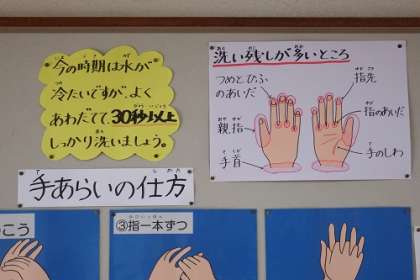 今の時期は水が
冷たいですが、よく
あわだてて、30秒以上
しっかり洗いましょう。
洗い残しが多いところ
つめとひふ
のあいだ
指先
親指
指のあいだ
手首
手のしわ
手あらいの仕方
こう
③指一本ずつ